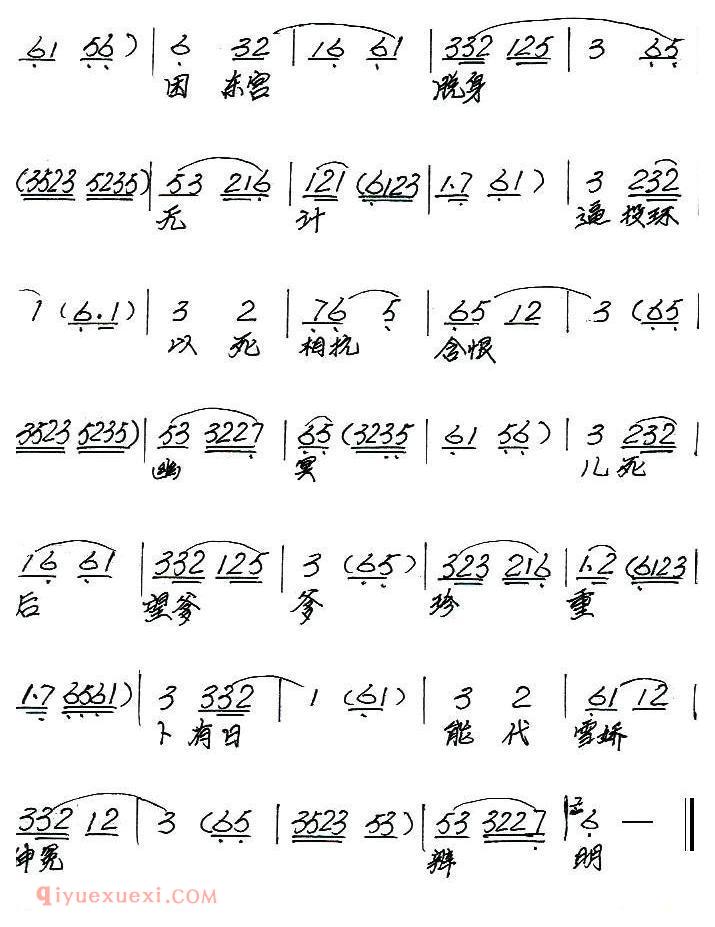 6 1 5 6 ) | 6 3 2 | 1 6 6 1 | 3 3 2 1 2 5 | 3 6 5 |
因 东宫 脱身
( 3 5 2 3 5 2 3 5 ) | 5 3 2 1 6 | 1 2 1 ( 6 1 2 3 | 1 · 7 6 1 ) | 3 2 3 2 |
无 计 逼 投环
1 ( 6 · 1 ) | 3 2 | 7 6 5 | 6 5 1 2 | 3 ( 6 5 |
以 死 相抗 含恨
3 5 2 3 5 2 3 5 ) | 5 3 3 2 2 7 | 6 5 ( 3 2 3 5 | 6 1 5 6 ) | 3 2 3 2 |
幽 冥 儿死
1 6 6 1 | 3 3 2 1 2 5 | 3 ( 6 5 ) | 3 2 3 2 1 6 | 1 · 2 ( 6 1 2 3 |
后 望爹 爹 珍 重
1 · 7 6 5 6 1 ) | 3 3 3 2 | 1 ( 6 1 ) | 3 2 | 6 1 1 2 |
卜 有日 能 代 雪娇
3 3 2 1 2 | 3 ( 6 5 | 3 5 2 3 5 3 ) | 5 3 3 2 2 7 | 6 — ‖
申冤 辨 明
qiyuexuexi.com